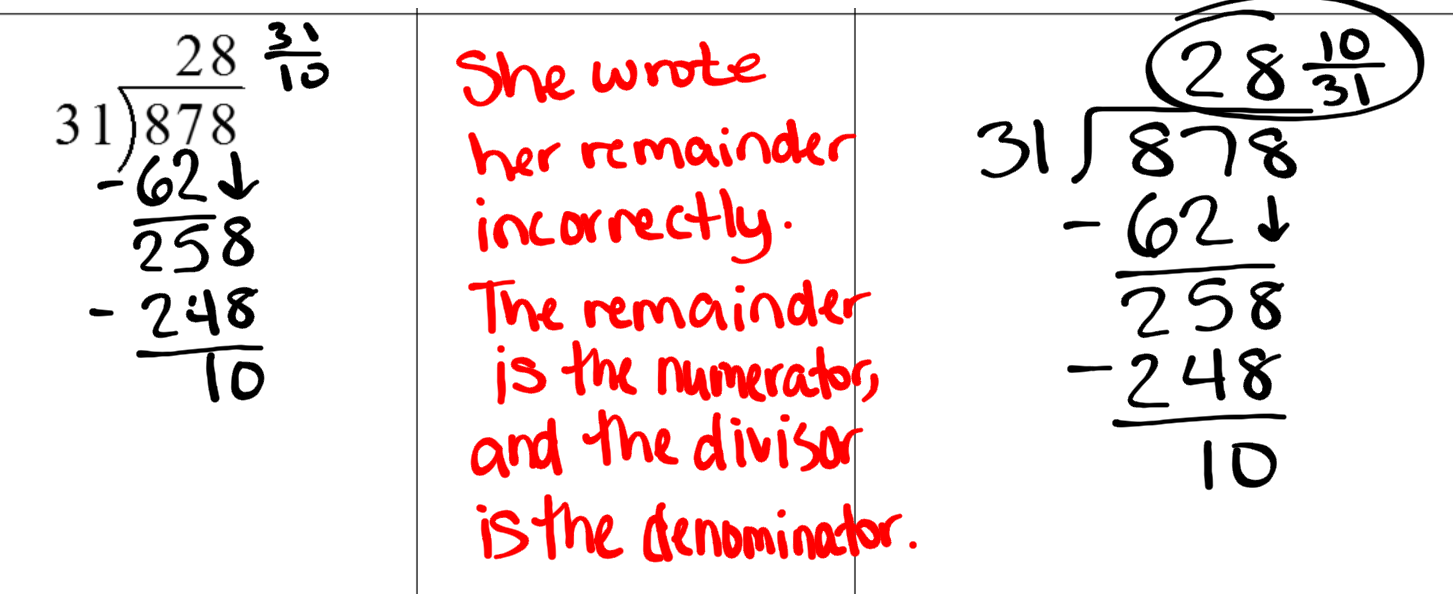 28 31/10
31)878
-62↓
258
-248
10
She wrote
her remainder
incorrectly.
The remainder
is the numerator,
and the divisor
is the denominator.
28 10/31
31)878
-62↓
258
-248
10